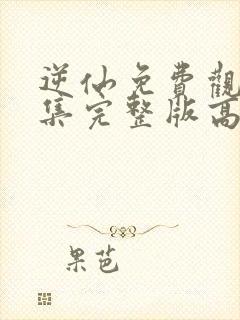 逆仙免費觀
集完整版高
果芭